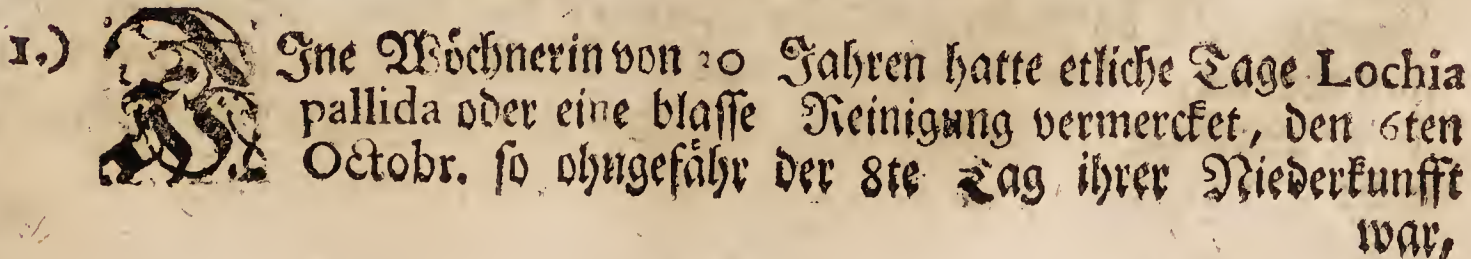 1.) EIne Wöchnerin von Jahren hatte etliche Tage Lochia
pallida oder eine blasse Reinigung vermercket, den 6ten
Octobr. so ohngefähr der 8te Tag ihrer Niederkunfft
war,